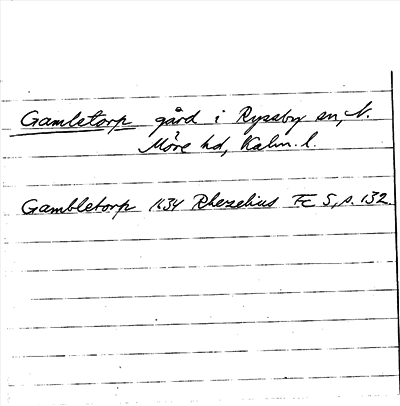 Gamletorp gård i Ryssby sn, N.
Möre hd, Kalm. l.
Gambletorp 1634 Rhezelius Fc 5, s. 132.